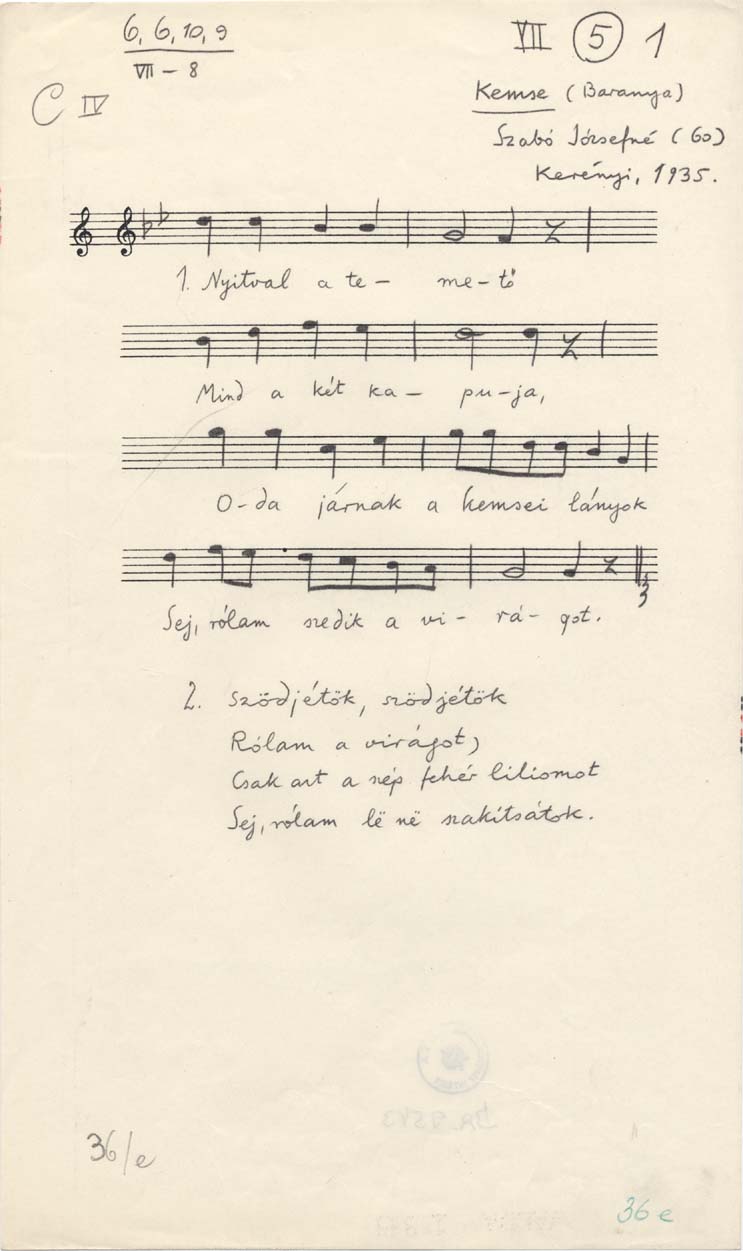 6, 6, 10, 9
VII – 8
VII 5 1
C IV
Kemse (Baranya)
Szabó Józsefné (60)
Kerényi, 1935.
1. Nyitval a te – me – tő
Mind a két ka – pu – ja,
O – da járnak a kemsei lányok
Sej, rólam szedik a vi – rá – got.
3
2. Szödjétök, szödjétök
Rólam a virágot,
Csak azt a szép fehér liliomot
Sej, rólam lë në szakítsátok.
36/e
36 e